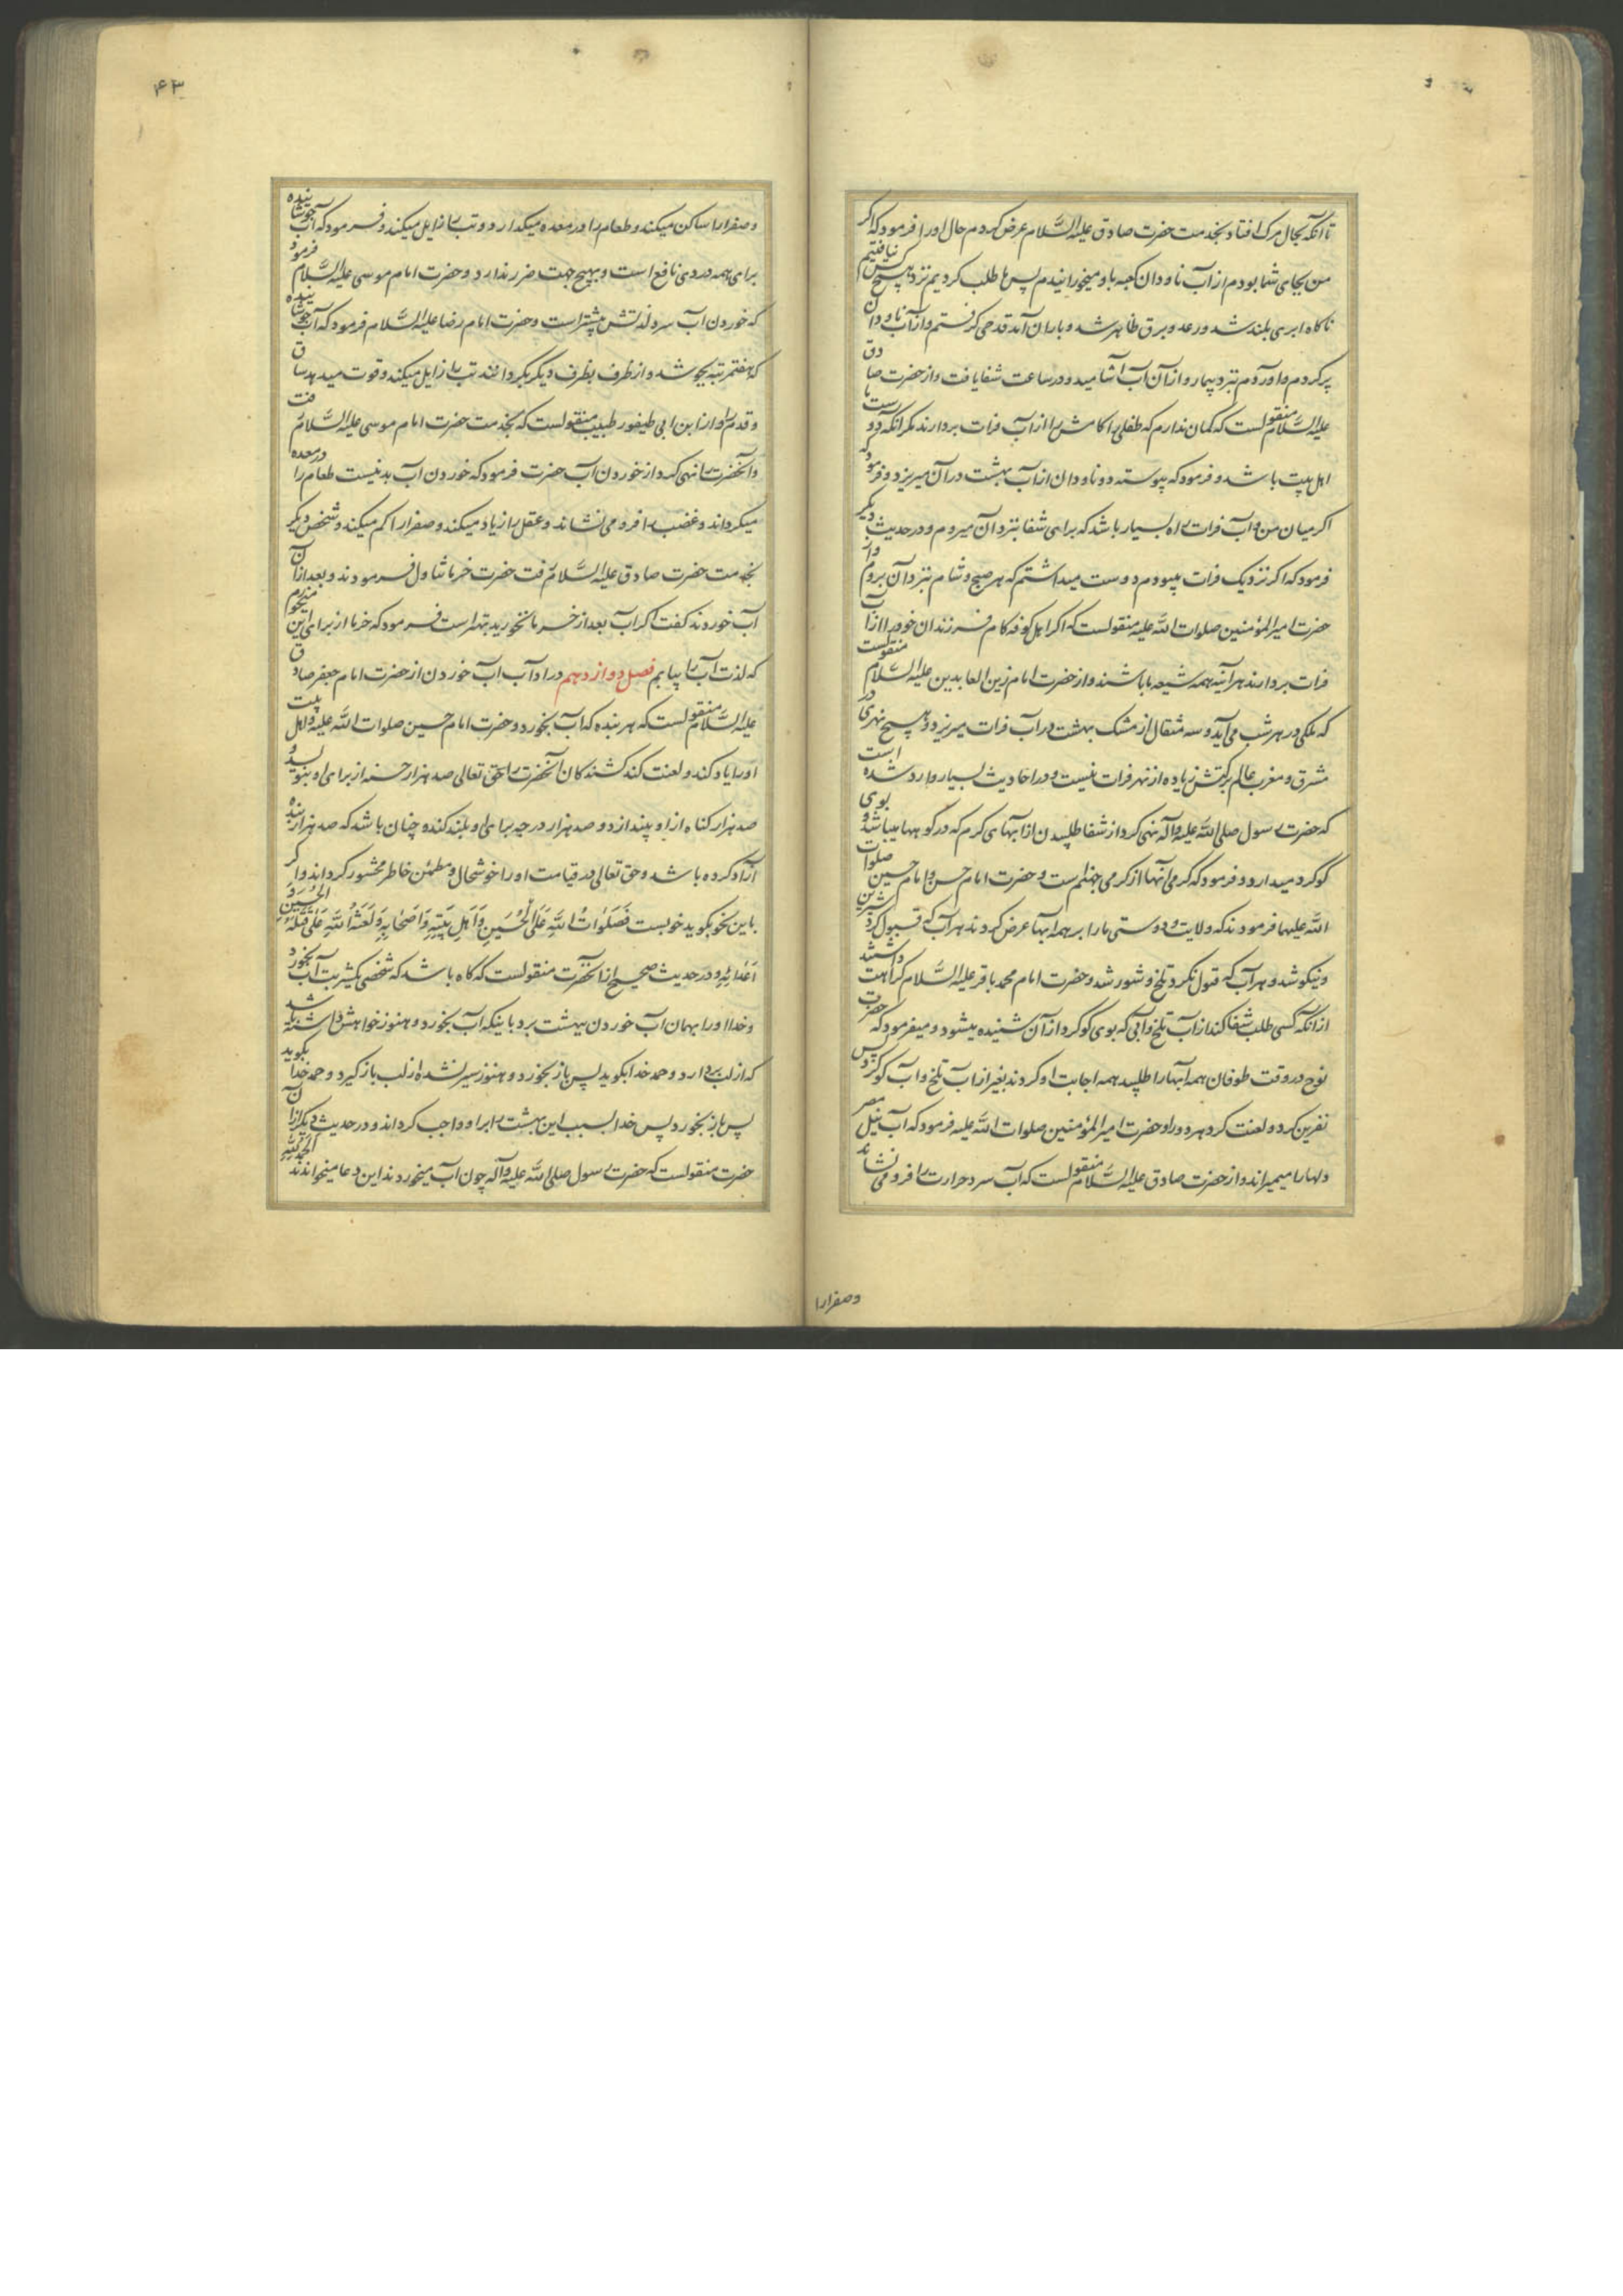 تا آنکه بحال مرک افتاد بخدمت حضرت صادق علیه السَّلام عرض کردم حال او را فرمود که اکر
من بجای شما بودم از آب ناودان کعبه باو میخورانیدم پس ما طلب کردیم نزد هیچکس نیافتیم
ناکاه ابری بلند شد و رعد و برق ظاهر شد و باران آمد قدحی کرفتم و از آب ناودان
پر کردم و آوردم نزد بیمار و از آن آب آشامید و در ساعت شفا یافت و از حضرت صادق
علیه السَّلام منقولست که کمان ندارم که طفلی را کامش را از آب فرات بردارند مکر آنکه دوست ما
اهل بیت باشد و فرمود که پیوسته دو ناودان از آب بهشت در آن میریزد و فرمود که
اکر میان من و آب فرات راه بسیار باشد که برای شفا بنزد آن میروم و در حدیث دیکر
فرمود که اکر نزدیک فرات میبودم دوست میداشتم که هر صبح و شام بنزد آن بروم و از
حضرت امیر المؤمنین صلوات الله علیه منقولست که اکر اهل کوفه کام فرزندان خود را از آب
فرات بردارند هر آینه همه شیعه ما باشند و از حضرت امام زین العابدین علیه السَّلام منقولست
که ملکی در هر شب می آید و سه مثقال از مشک بهشت در آب فرات میریزد و هیچ نهری در
مشرق و مغرب عالم برکتش زیاده از نهر فرات نیست و در احادیث بسیار وارد شده است
که حضرت رسول صلی الله علیه و آله نهی کرد از شفا طلبیدن از آبهای کرم که در کوهها میباشد و بوی
کوکرد میدارد و فرمود که کرمی آنها از کرمی جهنّم ست و حضرت امام حسن و امام حسین صلوات
الله علیهما فرمودند که ولایت و دوستی ما را بر همه آبها عرض کردند هر آب که قبول کرد شیرین
و نیکو شد و هر آب که قبول نکرد تلخ و شور شد و حضرت امام محمد باقر علیه السَّلام کراهت داشتند
از آنکه کسی طلب شفا کند از آب تلخ و آبی که بوی کوکرد از آن شنیده میشود و میفرمود که حضرت
نوح در وقت طوفان همه آبها را طلبید همه اجابت او کردند بغیر از آب تلخ و آب کوکرد پس
نفرین کرد و لعنت کرد هر دو را و حضرت امیر المؤمنین صلوات الله علیه فرمود که آب نیل مصر
دلها را میمیراند و از حضرت صادق علیه السَّلام منقولست که آب سرد حرارت را فرو می نشاند
وصفرا را
۴۳
و صفرا را ساکن میکند و طعام را در معده میکدازد و تب را زایل میکند و فرمود که آب جوشانیده
برای همه دردی نافع است و بهیچ جهت ضرر ندارد و حضرت امام موسی علیه السَّلام فرمود
که خوردن آب سرد لذتش بیشتر است و حضرت امام رضا علیه السَّلام فرمود که آب جوشانیده
که هفت مرتبه بجوشد و از ظرف بظرف دیکر بکردانند تب را زایل میکند و قوت میدهد ساق
و قدم را و از ابن ابی طیفور طبیب منقولست که بخدمت حضرت امام موسی علیه السَّلام رفت
و آنحضرت را نهی کرد از خوردن آب حضرت فرمود که خوردن آب بد نیست طعام را در معده
میکرداند و غضب را فرو می نشاند و عقل را زیاد میکند و صفرا را کم میکند و شخص دیکر
بخدمت حضرت صادق علیه السَّلام رفت حضرت خرما تناول فرمودند و بعد از آن
آب خوردند کفت اکر آب بعد از خرما نخورید بهتر است فرمود که خرما از برای این میخورم
که لذت آب را بیابم فصل دوازدهم در آداب آب خوردن از حضرت امام جعفر صادق
علیه السَّلام منقولست که هر بنده که آب بخورد و حضرت امام حسین صلوات الله علیه و اهل بیت
او را یاد کند و لعنت کند کشندکان آنحضرت را حق تعالی صد هزار حسنه از برای او بنویسد و
صد هزار کناه از او بیندازد و صد هزار درجه برای او بلند کند و چنان باشد که صد هزار بنده
آزاد کرده باشد و حق تعالی در قیامت او را خوشحال و مطمئن خاطر محشور کرداند و اکر
باین نحو بکوید خوبست فَصَلَواتُ اللّهِ عَلَی الْحُسَینِ وَاَهْلِ بَیْتِهِ وَاَصْحابِهِ وَلَعْنَةُ اللّهِ عَلی قَتَلَةِ الْحُسَیْنِ وَ
اَعْدائِهِ و در حدیث صحیح از آنحضرت منقولست که کاه باشد که شخصی یکشربت آب بخورد
و خدا او را بهمان آب خوردن ببهشت برد باینکه آب بخورد و هنوز خواهش داشته باشد
که از لب بردارد و حمد خدا بکوید پس باز بخورد و هنوز سیر نشده از لب باز کیرد و حمد خدا بکوید
پس باز بخورد پس خدا بسبب این بهشت را بر او واجب کرداند و در حدیث دیکر از آن
حضرت منقولست که حضرت رسول صلی الله علیه و آله چون آب میخوردند این دعا میخواندند اَلْحَمْدُ لِلّهِ